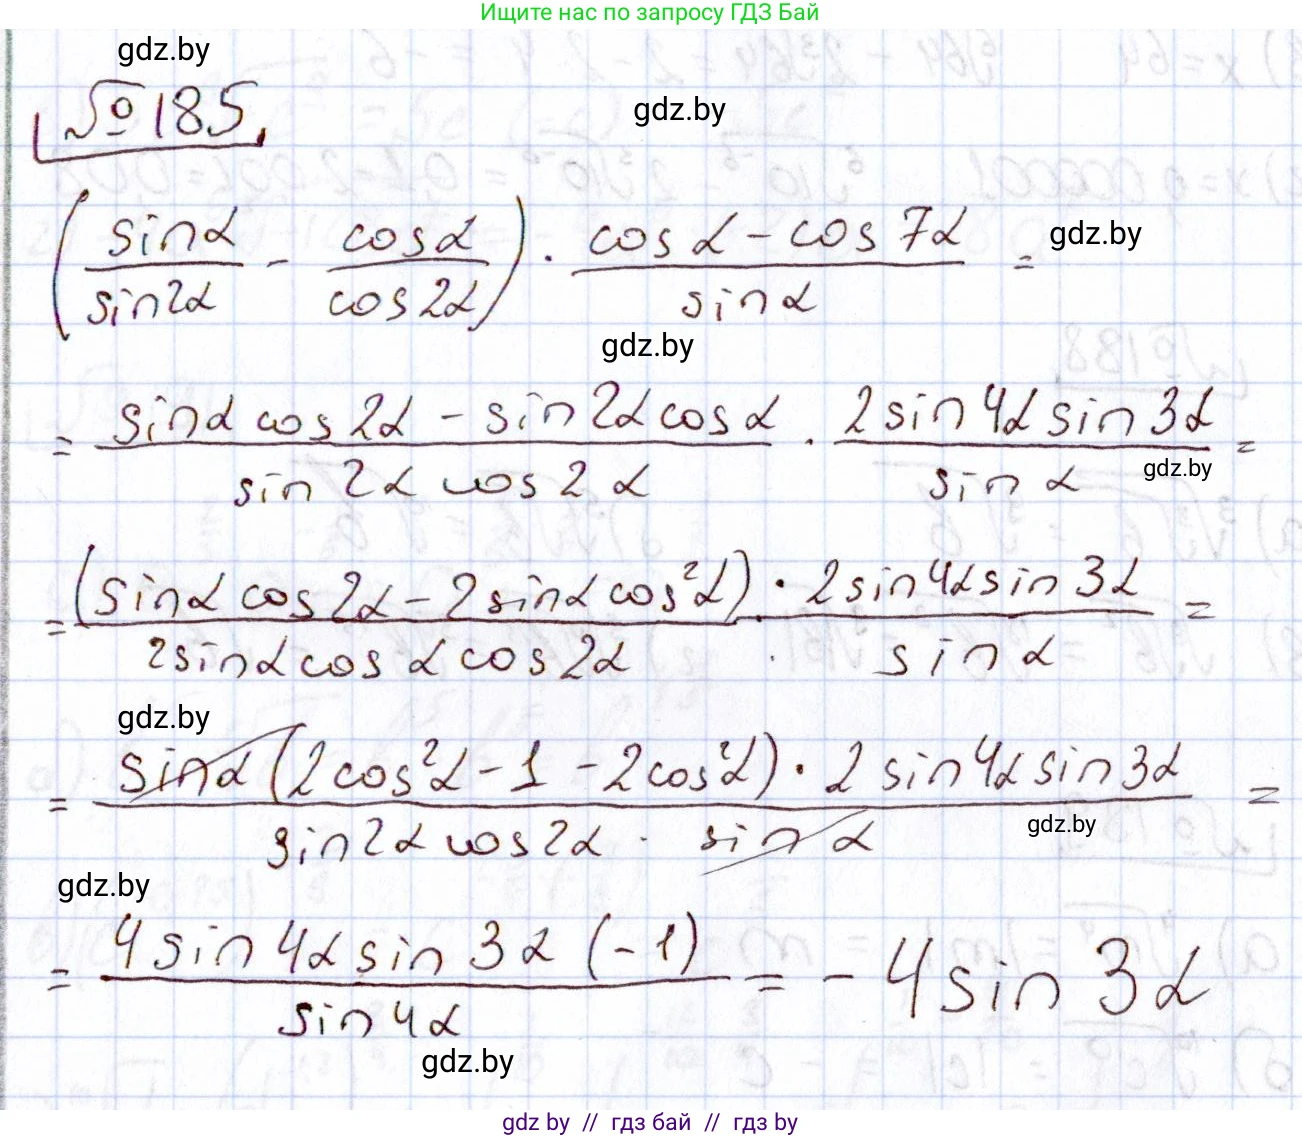 Ищите нас по запросу ГДЗ Бай
gdz.by
№185.
gdz.by
(sinα/sin2α - cosα/cos2α) · (cosα - cos7α)/sinα =
gdz.by
gdz.by
= (sinα cos2α - sin2α cosα)/(sin2α cos2α) · (2sin4α sin3α)/sinα =
gdz.by
= (sinα cos2α - 2sinα cos²α)/(2sinα cosα cos2α) · (2sin4α sin3α)/sinα =
gdz.by
= (sinα (2cos²α - 1 - 2cos²α) · 2sin4α sin3α)/(sin2α cos2α · sinα) =
gdz.by
gdz.by
= (4sin4α sin3α (-1))/sin4α = -4sin3α
gdz.by
gdz by // гдз бай // гдз by